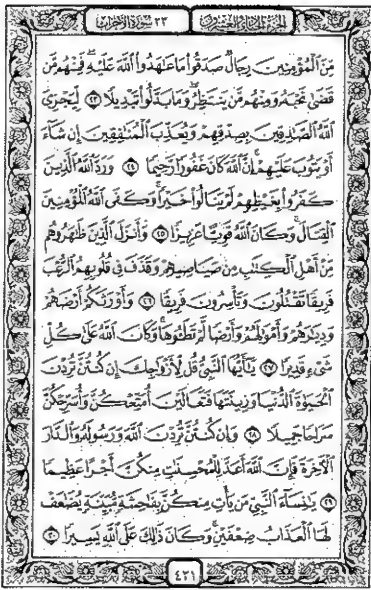 الجزء الحادي والعشرون ٣٣ سورة الأحزاب
مِّنَ ٱلْمُؤْمِنِينَ رِجَالٌ صَدَقُوا۟ مَا عَٰهَدُوا۟ ٱللَّهَ عَلَيْهِ ۖ فَمِنْهُم مَّن
قَضَىٰ نَحْبَهُۥ وَمِنْهُم مَّن يَنتَظِرُ ۖ وَمَا بَدَّلُوا۟ تَبْدِيلًا ٢٣ لِّيَجْزِىَ
ٱللَّهُ ٱلصَّٰدِقِينَ بِصِدْقِهِمْ وَيُعَذِّبَ ٱلْمُنَٰفِقِينَ إِن شَآءَ
أَوْ يَتُوبَ عَلَيْهِمْ ۚ إِنَّ ٱللَّهَ كَانَ غَفُورًا رَّحِيمًا ٢٤ وَرَدَّ ٱللَّهُ ٱلَّذِينَ
كَفَرُوا۟ بِغَيْظِهِمْ لَمْ يَنَالُوا۟ خَيْرًا ۚ وَكَفَى ٱللَّهُ ٱلْمُؤْمِنِينَ
ٱلْقِتَالَ ۚ وَكَانَ ٱللَّهُ قَوِيًّا عَزِيزًا ٢٥ وَأَنزَلَ ٱلَّذِينَ ظَٰهَرُوهُم
مِّنْ أَهْلِ ٱلْكِتَٰبِ مِن صَيَاصِيهِمْ وَقَذَفَ فِى قُلُوبِهِمُ ٱلرُّعْبَ
فَرِيقًا تَقْتُلُونَ وَتَأْسِرُونَ فَرِيقًا ٢٦ وَأَوْرَثَكُمْ أَرْضَهُمْ
وَدِيَٰرَهُمْ وَأَمْوَٰلَهُمْ وَأَرْضًا لَّمْ تَطَـُٔوهَا ۚ وَكَانَ ٱللَّهُ عَلَىٰ كُلِّ
شَىْءٍ قَدِيرًا ٢٧ يَٰٓأَيُّهَا ٱلنَّبِىُّ قُل لِّأَزْوَٰجِكَ إِن كُنتُنَّ تُرِدْنَ
ٱلْحَيَوٰةَ ٱلدُّنْيَا وَزِينَتَهَا فَتَعَالَيْنَ أُمَتِّعْكُنَّ وَأُسَرِّحْكُنَّ
سَرَاحًا جَمِيلًا ٢٨ وَإِن كُنتُنَّ تُرِدْنَ ٱللَّهَ وَرَسُولَهُۥ وَٱلدَّارَ
ٱلْءَاخِرَةَ فَإِنَّ ٱللَّهَ أَعَدَّ لِلْمُحْسِنَٰتِ مِنكُنَّ أَجْرًا عَظِيمًا
٢٩ يَٰنِسَآءَ ٱلنَّبِىِّ مَن يَأْتِ مِنكُنَّ بِفَٰحِشَةٍ مُّبَيِّنَةٍ يُضَٰعَفْ
لَهَا ٱلْعَذَابُ ضِعْفَيْنِ ۚ وَكَانَ ذَٰلِكَ عَلَى ٱللَّهِ يَسِيرًا ٣٠
٤٢١